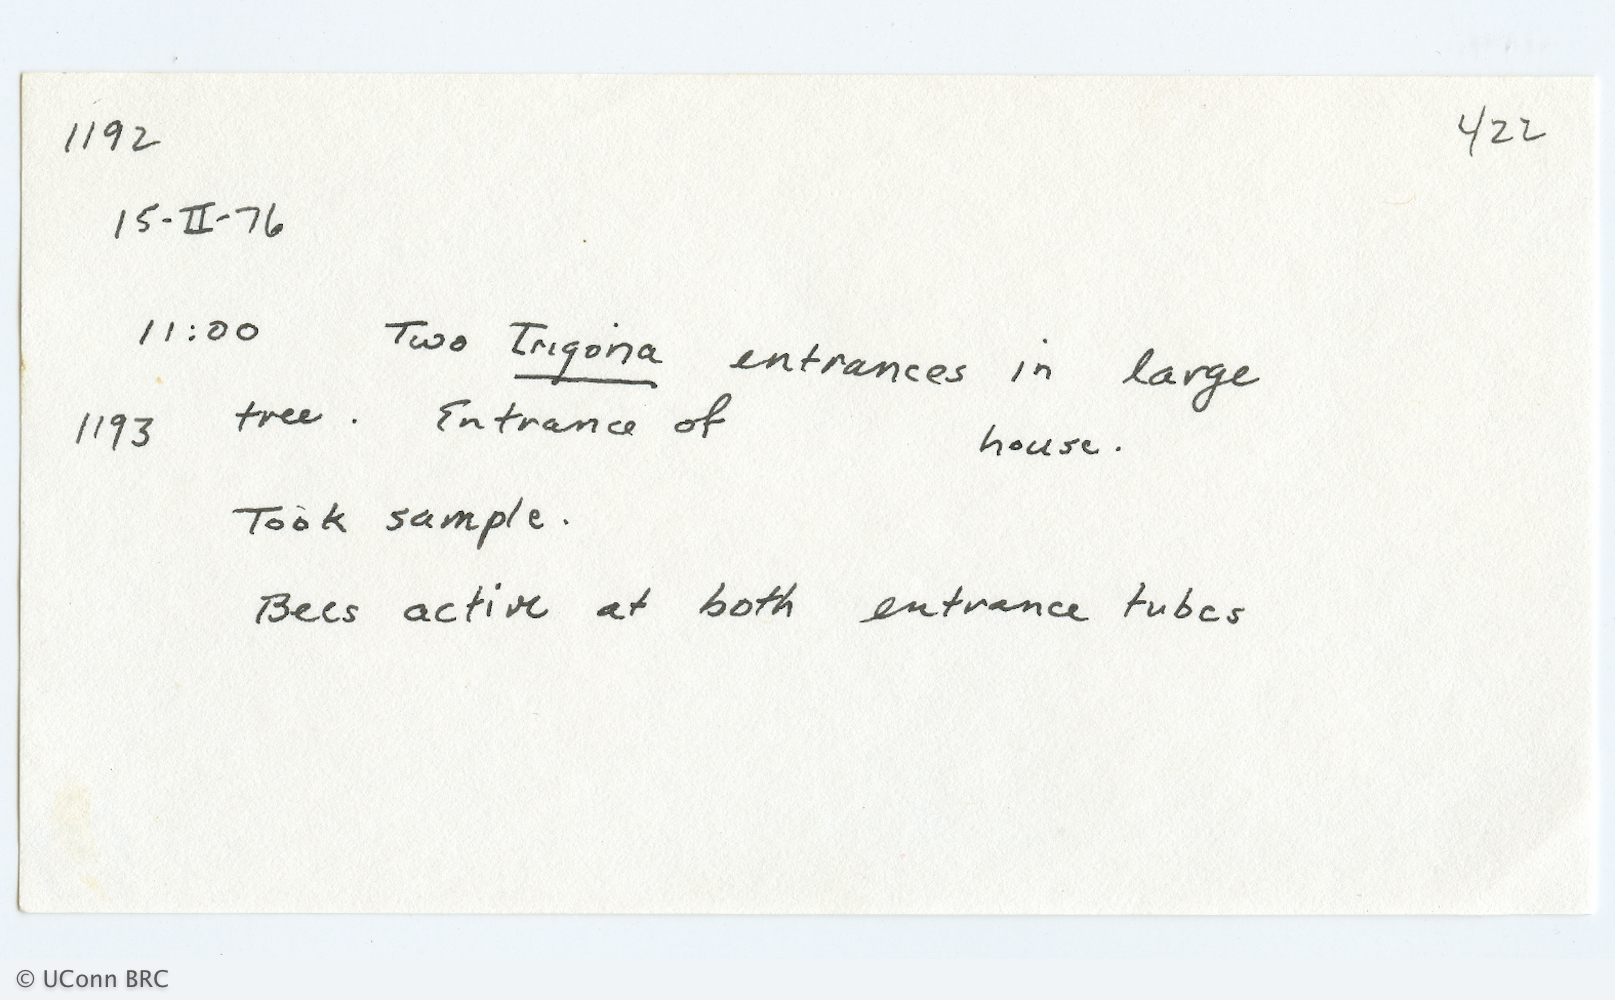 1192 4/22
15-II-76
11:00 Two Trigona entrances in large
1193 tree. Entrance of house.
Took sample.
Bees active at both entrance tubes
© UConn BRC